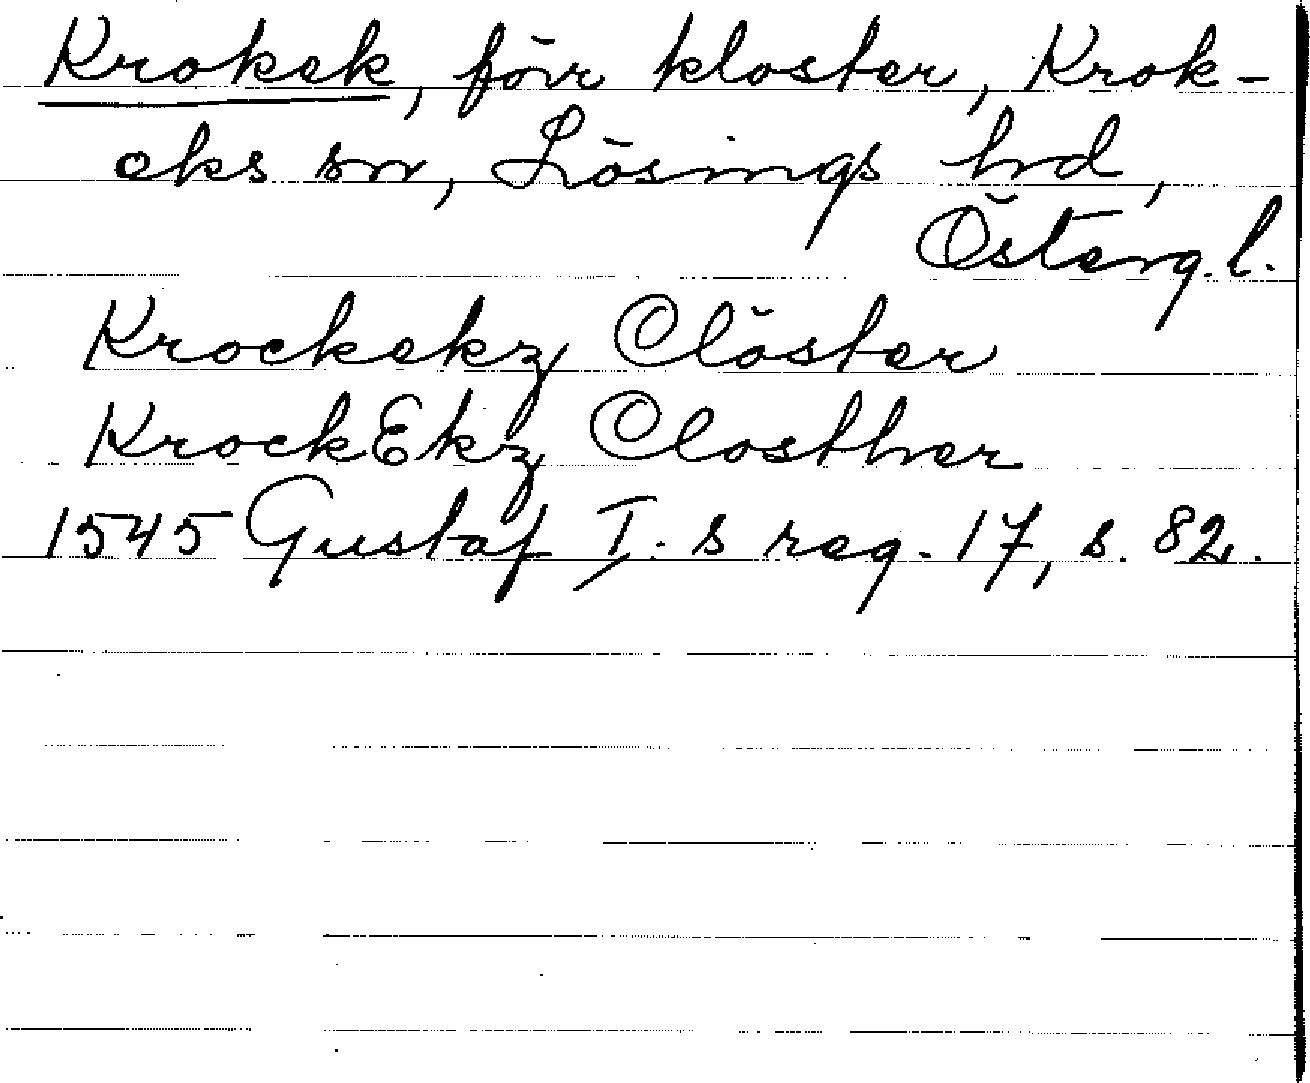 Krokek, förr kloster, Krok-
eks sn, Lösings hd,
Österg.l.
Krockekz Clöster
KrockEkz Closther
1545 Gustaf I.s reg. 17, s. 82.